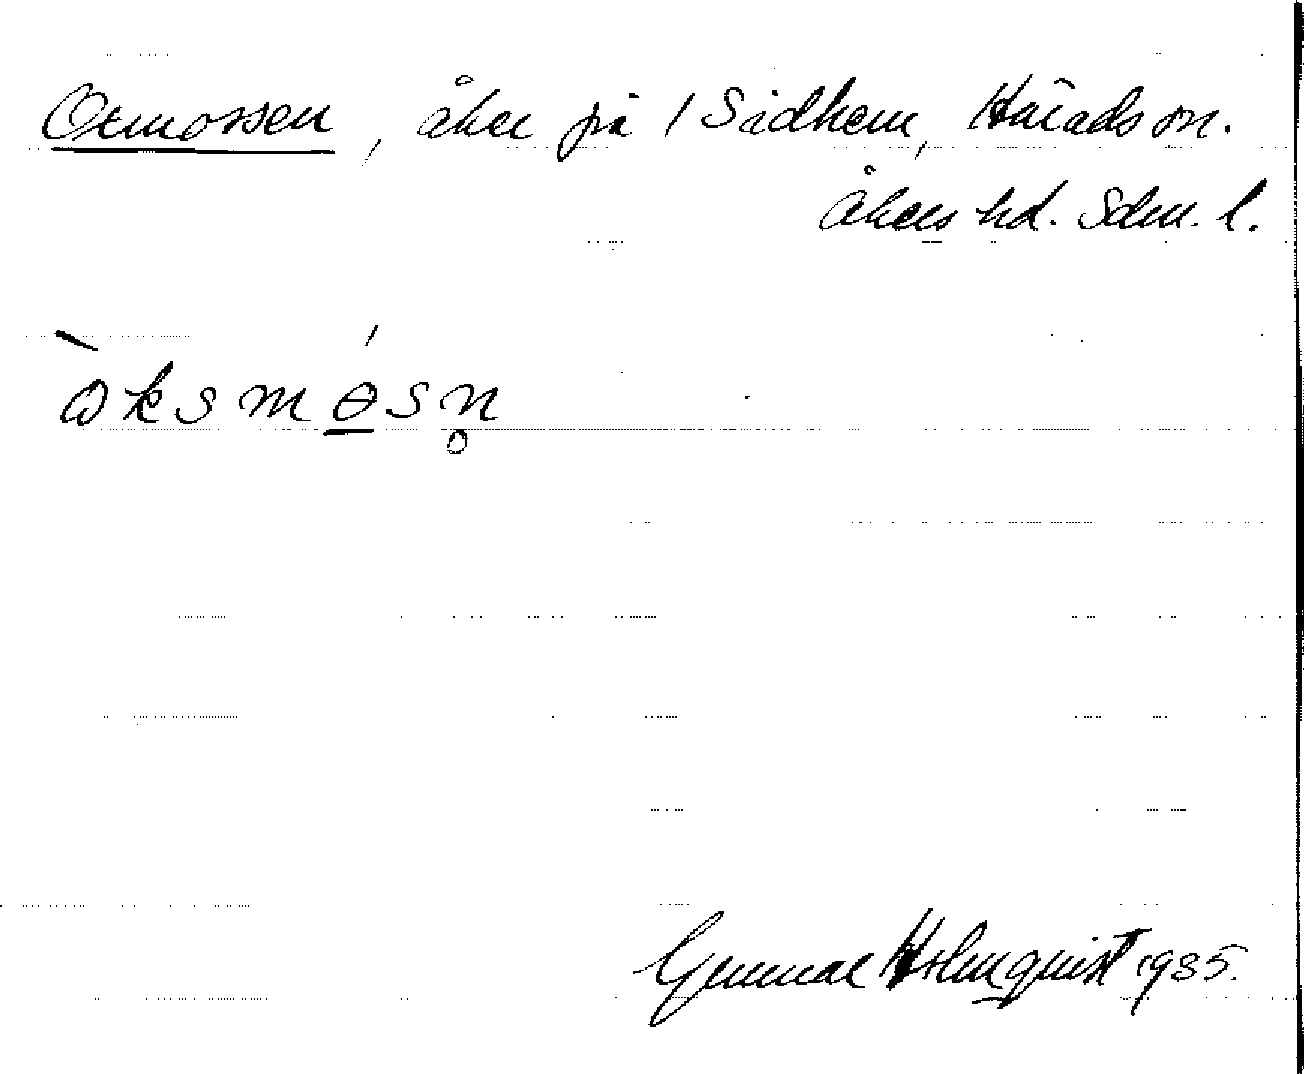 Oxmossen, åker på 1 Sidhem, Härads sn.
Åkers hd. Sdm. l.
ò k s m ө́ s n̥
Gunnar Holmquist 1935.